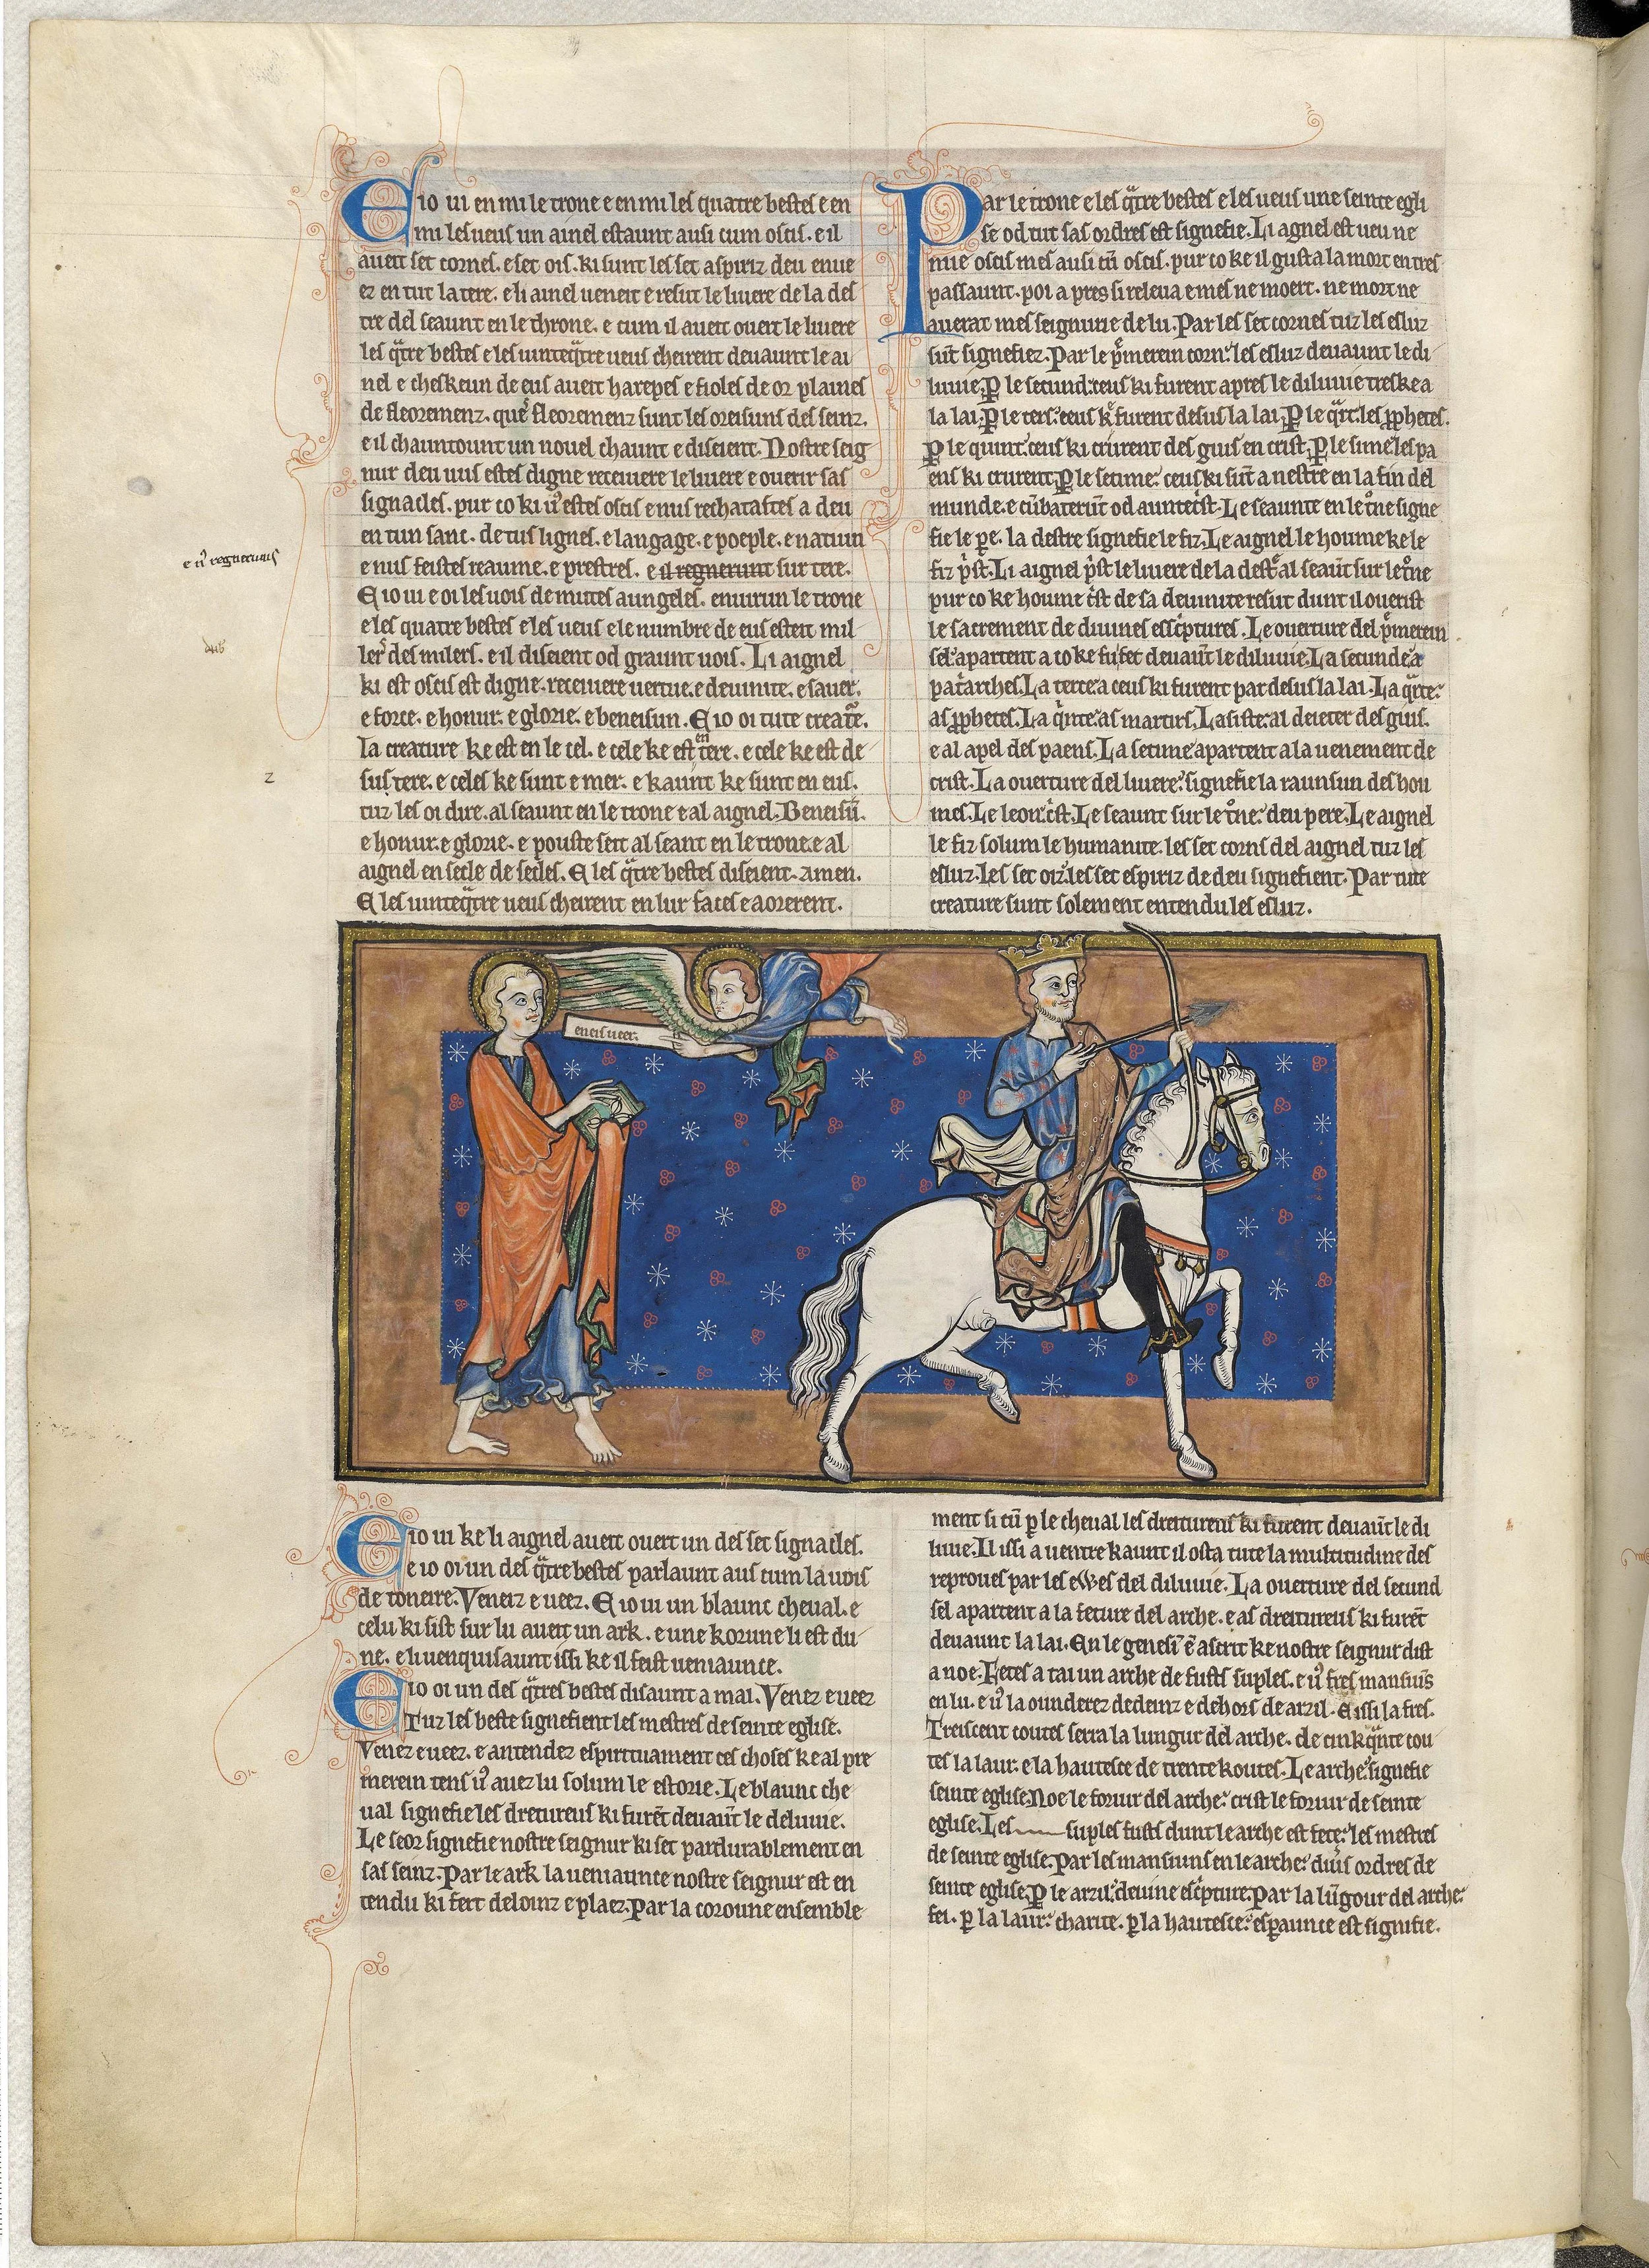 E io ui en mi le trone e en mi les quatre bestes e en
mi les ueus un ainel estaunt ausi cum oscis. e il
aueit set cornes. e set ois. ki sunt les set aspiriz deu enue
ez en tut la tere. e li ainel ueneit e resut le liuere de la des
tre del seaunt en le throne. e cum il aueit ouert le liuere
les q̃tre bestes e les uinteq̃tre ueus cheirent deuaunt le ai
nel e cheskeun de eus aueit harepes e fioles de or plaines
de fleoremenz. que fleoremenz sunt les oreisuns des seinz.
e il chauntount un nouel chaunt e diseient. Nostre seig
nur deu uus estes digne receiuere le liuere e ouerir sas
signacles. pur co ki u᾿ estes oscis e nus rechatastes a deu
en tun sanc. de tus lignes. e langage. e poeple. e natiun
e nus feistes reaume. e prestres. e il regnerunt sur tere.
e n᾿ regneruns
E io ui e oi les uois de mutes aungeles. enuirun le trone
e les quatre bestes e les ueus e le numbre de eus esteit mil
lers des milers. e il diseient od graunt uois. Li aignel
ki est oscis est digne. receiuere uertue. e deuinite. e sauer.
e force. e honur. e glorie. e beneisun. E io oi tute creat̃e.
la creature ke est en le cel. e cele ke est en tere. e cele ke est de
sus tere. e celes ke sunt e mer. e kaunt ke sunt en eus.
tuz les oi dire. al seaunt en le trone e al aignel. Beneisũ.
e honur. e glorie. e pouste seit al seant en le trone. e al
aignel en secle de secles. E les q̃tre bestes diseient. amen.
E les uinteq̃tre ueus cheirent en lur faces e aorerent.
Par le trone e les q̃tre bestes e les ueus une seinte egli
se od tut sas ordres est signefie. Li agnel est ueu ne
mie oscis mes ausi cũ oscis. pur co ke il gusta la mort en tres
passaunt. poi a pres si releua e mes ne moert. ne mort ne
auerat mes seignurie de lu. Par les set cornes tuz les esluz
sũt signefiez. Par le p̃merein corn: les esluz deuaunt le di
luuie. ꝑ le secund: ceus ki furent apres le diluuie treske a
la lai. ꝑ le ters: ceus k̾ furent desus la lai. ꝑ le q̃rt: les ꝓphetes.
ꝑ le quint: ceus ki crurent des guis en crist. ꝑ le sime: les pa
ens ki crurent. ꝑ le setime: ceus ki sũt a nestre en la fin del
munde. e cũbaterũt od auntecr̾st. Le seaunte en le t᷒ne signe
fie le pe̾. la destre signefie le fiz. Le aignel le houme ke le
fiz p̾st. Li aignel p̾st le liuere de la dest̾ al seaũt sur le t᷒ne
pur co ke houme cr̾st de sa deuinite resut dunt il ouerist
le sacrement de diuines escc̾ptures. Le ouerture del p̃merein
sel: apartent a co ke fu fet deuaũt le diluuie. La secunde: a
pat̾arches. La terce: a ceus ki furent par desus la lai. La q̃rte:
as ꝓphetes. La q̾nte: as martirs. La siste: al deieter des guis.
e al apel des paens. La setime: apartent a la uenement de
crist. La ouerture del liuere: signefie la raunsun des hou
mes. Le leon: cr̾st. Le seaunt sur le t᷒ne: deu pere. Le aignel
le fiz solum le humanite. les set corns del aignel tuz les
esluz. Les set oiz: les set espiriz de deu signefient. Par tute
creature sunt solement entendu les esluz.
Venez e ueer.
E io ui ke li aignel aueit ouert un des set signacles.
e io oi un des q̃tre bestes parlaunt aus cum la uois
de toneire. Veneiz e ueez. E io ui un blaunc cheual. e
celu ki sist sur lu aueit un ark. e une korune li est du
ne. e li uenquisaunt issi ke il feist ueniaunce.
E io oi un des q̃tres bestes disaunt a mai. Venez e ueez
Tuz les beste signefient les mestres de seinte eglise.
Venez e ueez. e antendez espiritualment ces choses ke al pre
merein tens u᾿ auez lu solum le estorie. Le blaunc che
ual signefie les dretureus ki furẽt deuaũt le deluuie.
Le seor signefie nostre seignur ki set pardurablement en
sas seinz. Par le ark la ueniaunce nostre seignur est en
tendu ki fert deloinz e plaez. Par la coroune ensemble
ment si cũ ꝑ le cheual les dreitureus ki furent deuaũt le di
luuie. Il issi a uentre kaunt il osta tute la multitudine des
reproues par les ewes del diluuie. La ouerture del secund
sel apartent a la feture del arche. e as dreitureus ki furẽt
deuaunt la lai. En le genesi᾿ ẽ ascrit ke nostre seignur dist
a noe. Fetes a tai un arche de fusts suples. e u᾿ fres mansiũs
en lu. e u᾿ la ounderez dedeinz e dehors de arzil. E issi la fres.
Treiscent coutes serra la lungur del arche. de cink̾nte cou
tes la laur. e la hautesce de trente koutes. Le arche: signefie
seinte eglise. Noe le foruur del arche: crist le foruur de seinte
eglise. Les suples fusts dunt le arche est fete: les mestres
de seinte eglise. Par les mansiuns en le arche: diũs ordres de
seinte eglise. ꝑ le arzil: deuine esc̾pture. Par la lũgour del arche:
fei. ꝑ la laur: charite. ꝑ la hautesce: esꝑaunce est signifie.